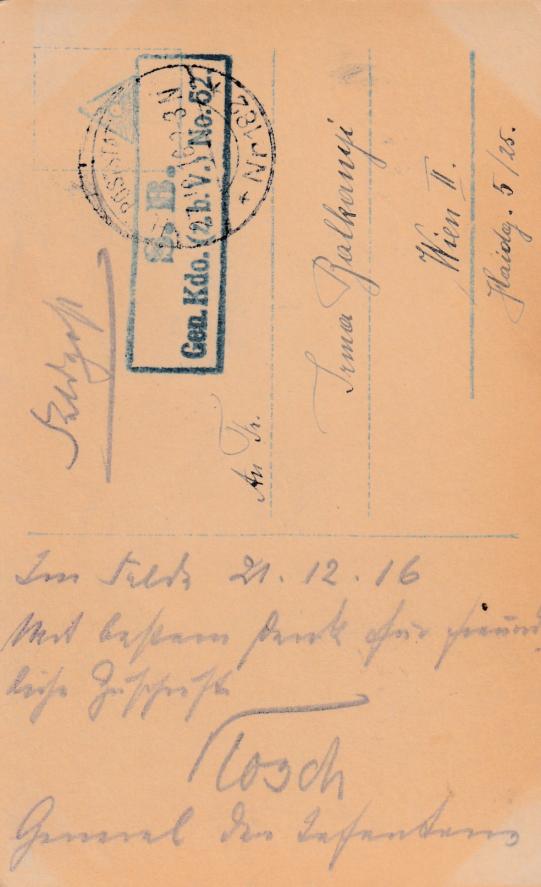 Feldpost
S. B.
Gen. Kdo. (z. b. V.) No. 62
Nr 182
An Fr.
Irma Balkanyi
Wien II.
Haidg. 5/25.
Im Felde 21.12.16
Mit bestem Dank für freund
liche Zuschrift
Tosch
General der Infanterie